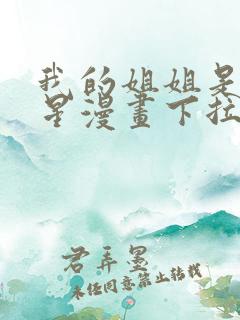 我的姐姐是
星漫畫下拉
君弄墨
未经同意禁止转载